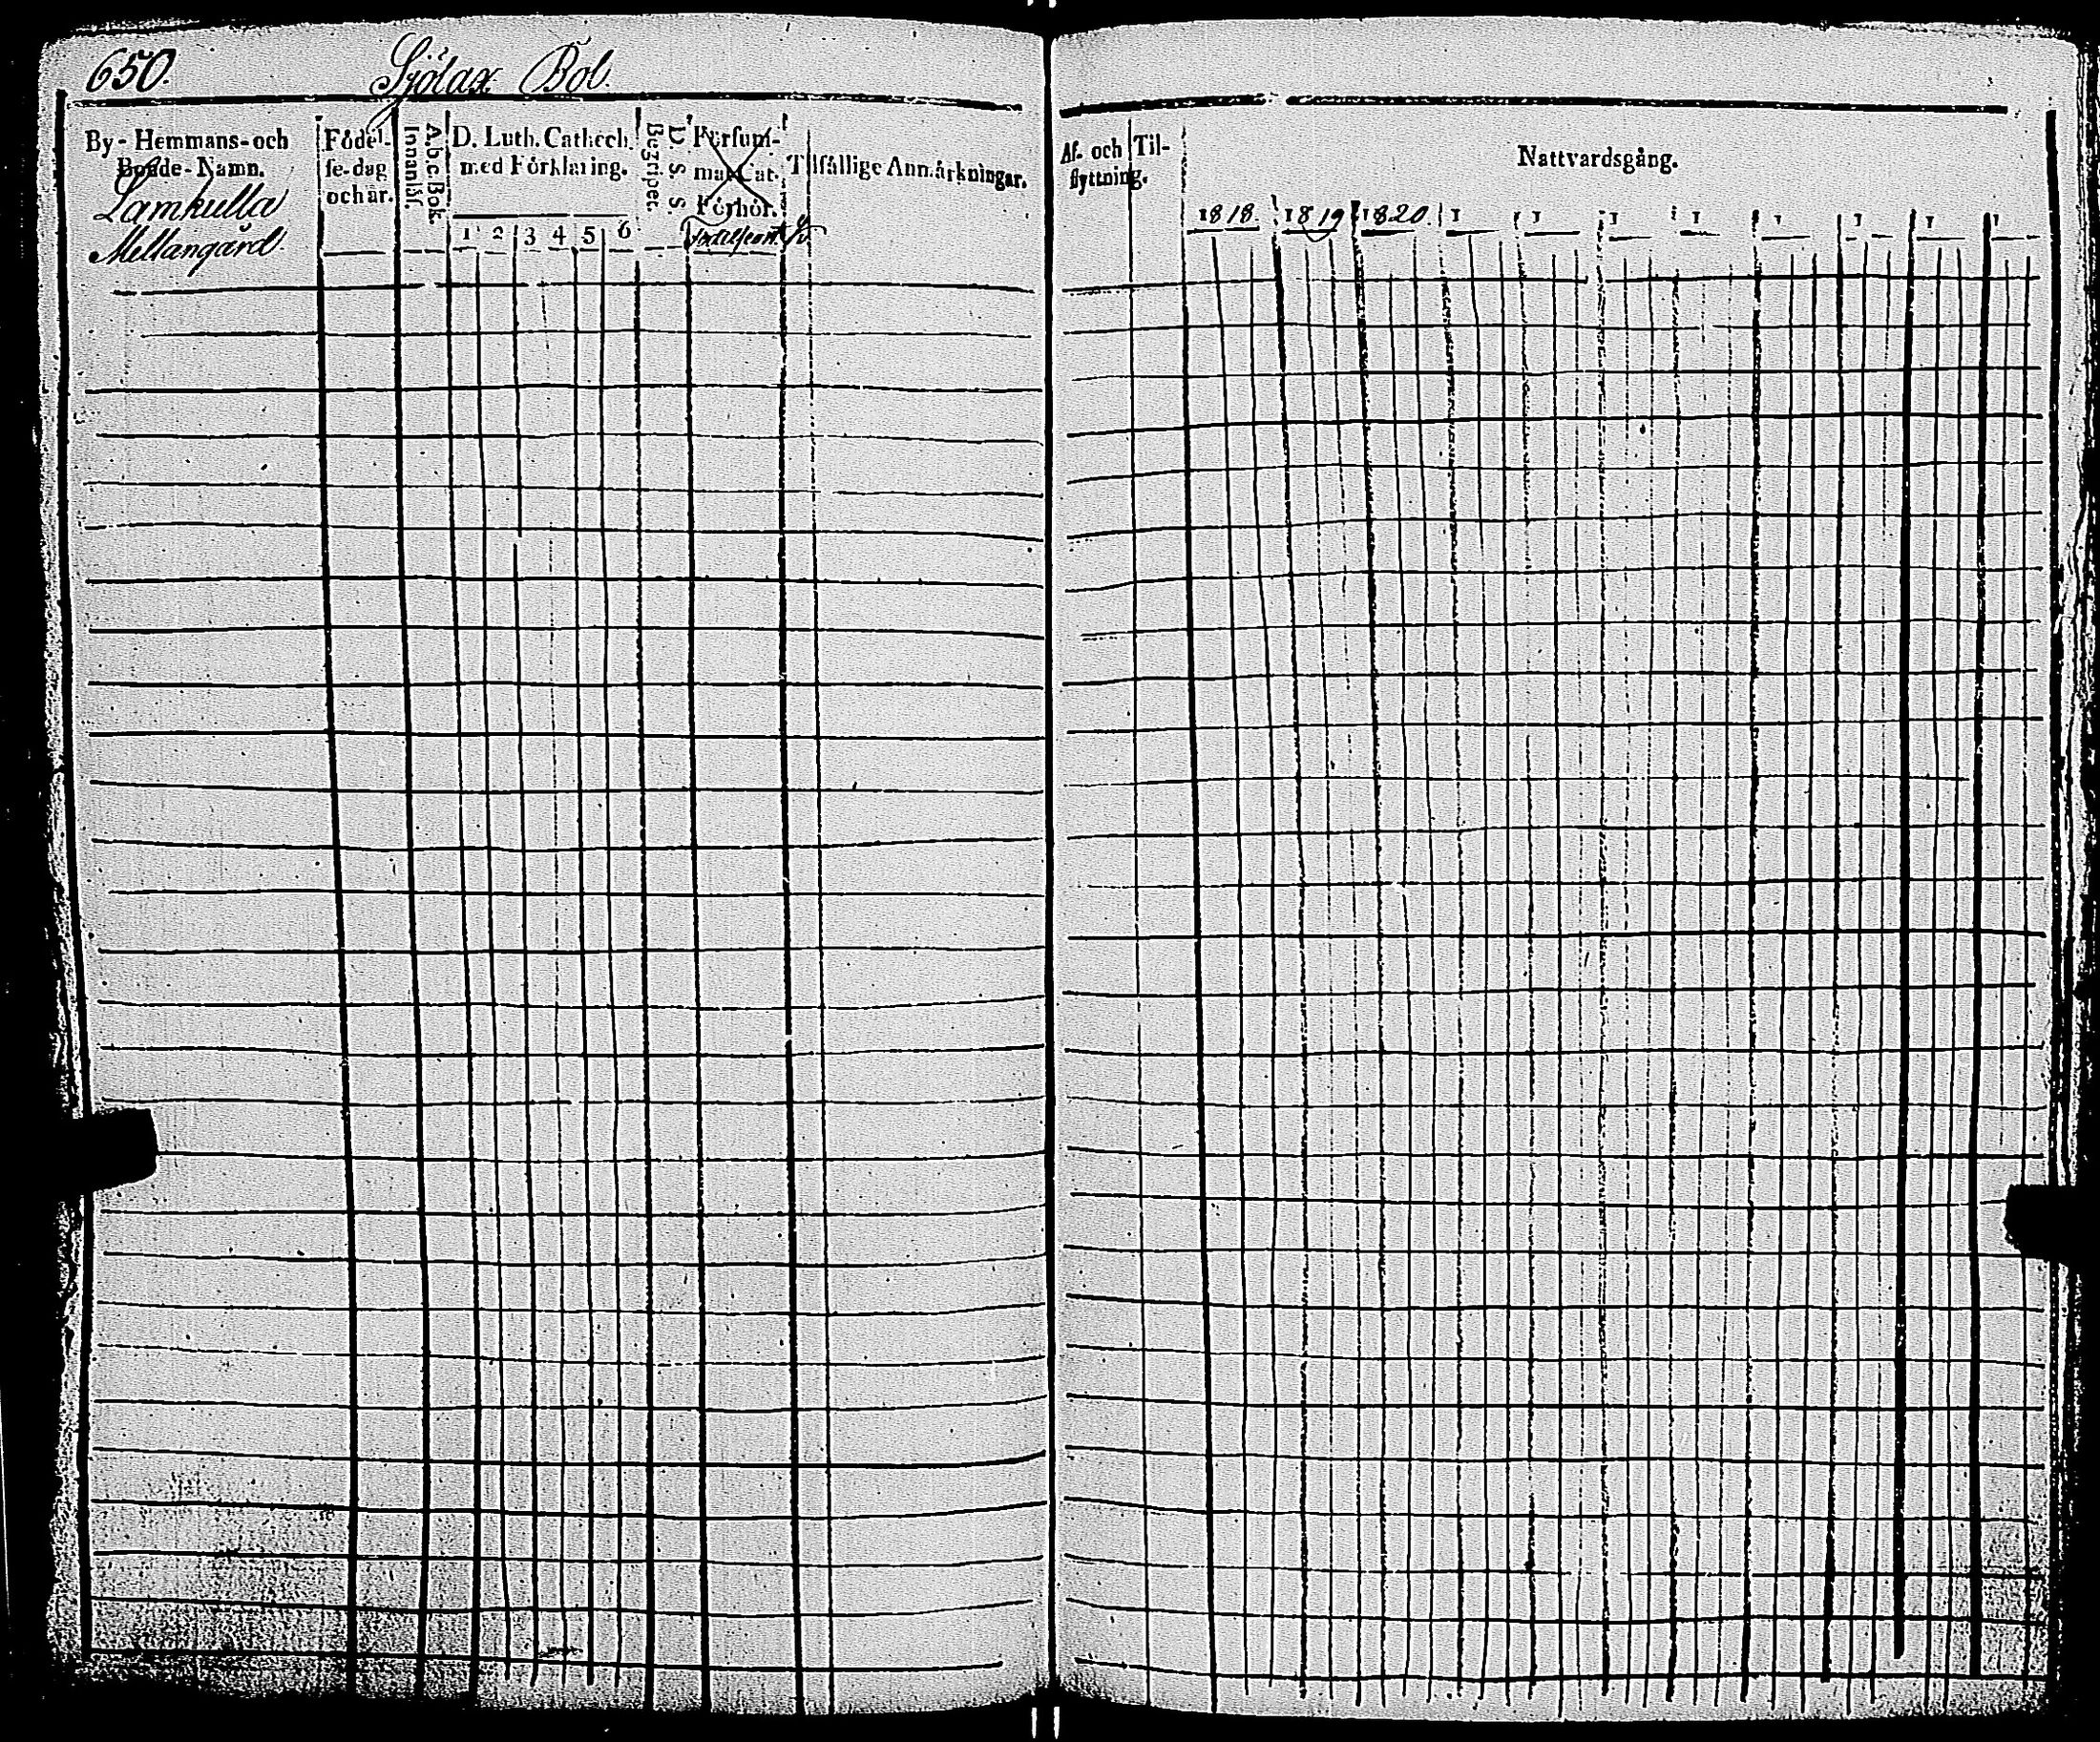 650.
Sjölax Bol.
By-Hemmans-och
Boade-Namn.
Lamkulla
Mellangård.
Födel-
se-dag
och år.
A.b.c Bok.
Innanläs.
D. Luth. Cathech.
med Förklaring.
1 2 3 4 5 6
D. S. S.
Begripet.
Försum-
mat Cat.
Förhör.
Tilfällige Anmärkningar.
Af- och Til-
flyttning.
Nattvardsgång.
1818. 1819 1820. 1 1 1 1 1 1 1 1